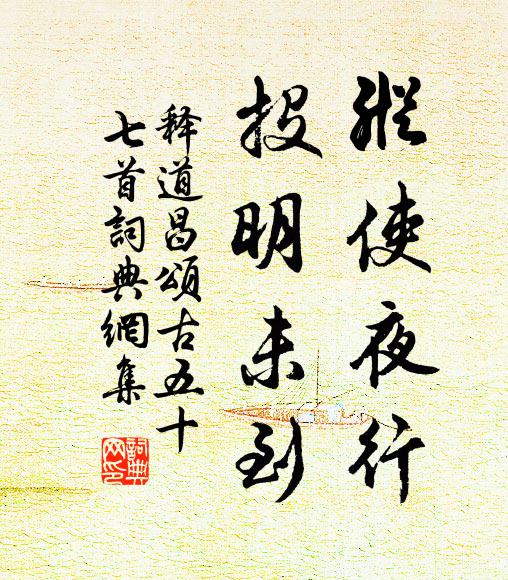 縱使夜行
投明未到
释道昌頌古五十
七首詞典網集
詞典
网印